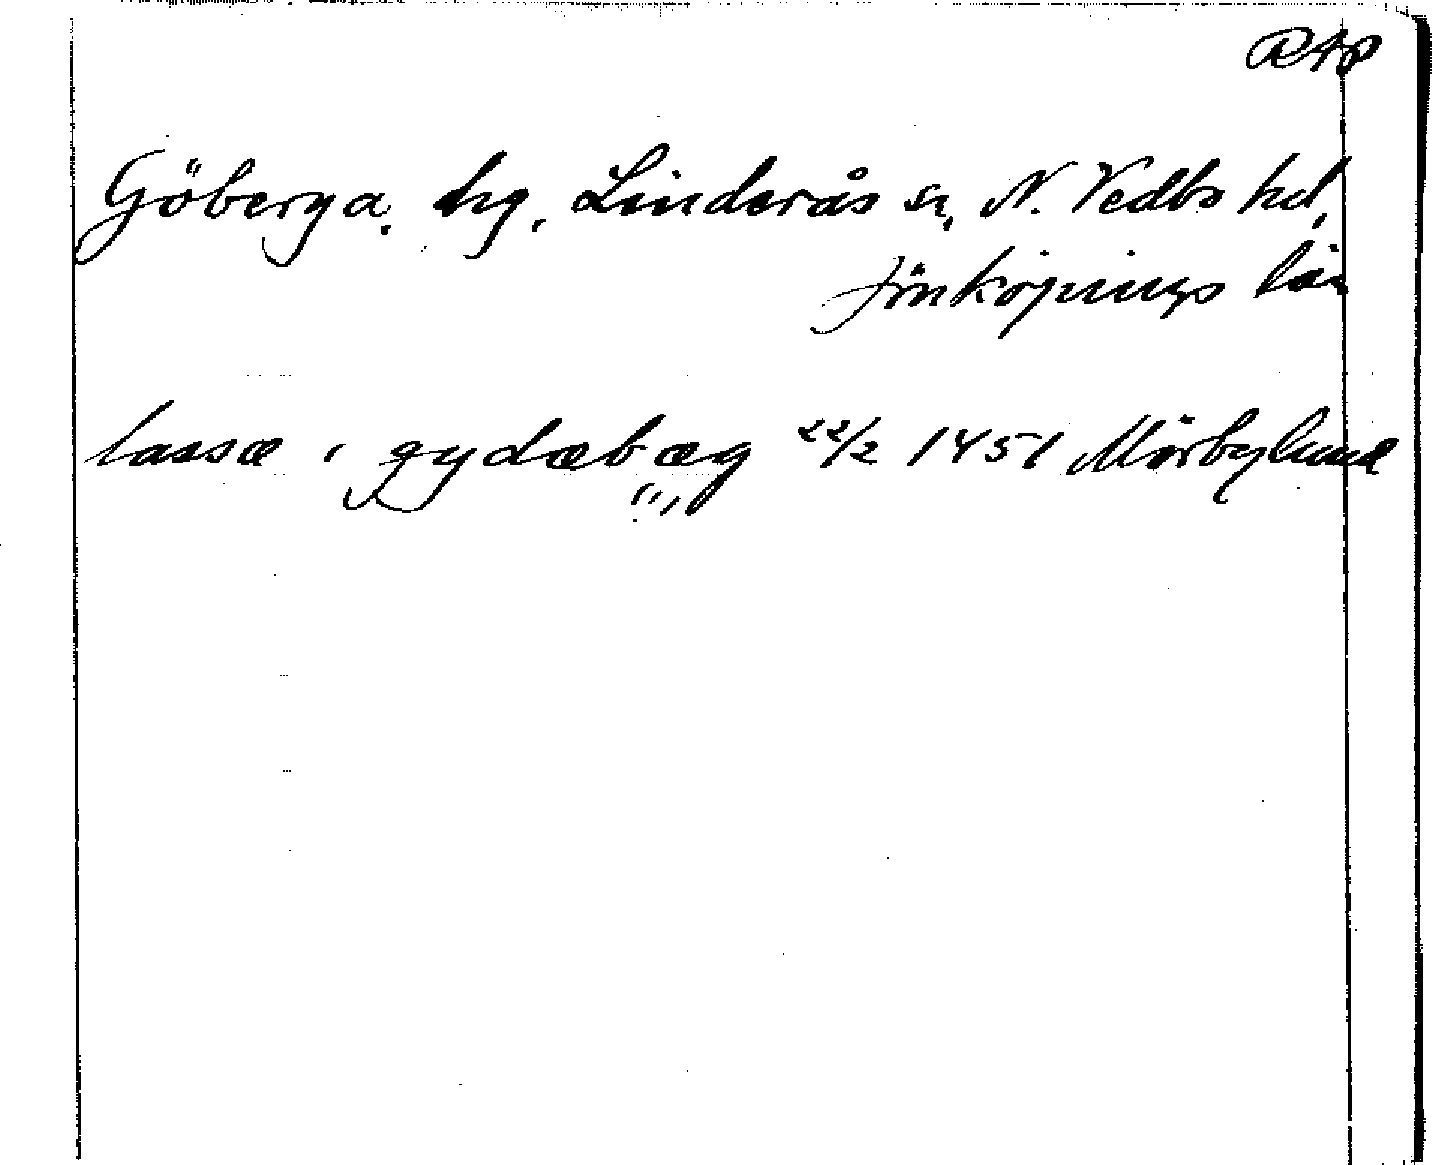 RAp
Göberga, hg, Linderås sn, N. Vedbo hd,
Jönköpings län
lassæ i gydæbæg 22/2 1451 Mörbylund